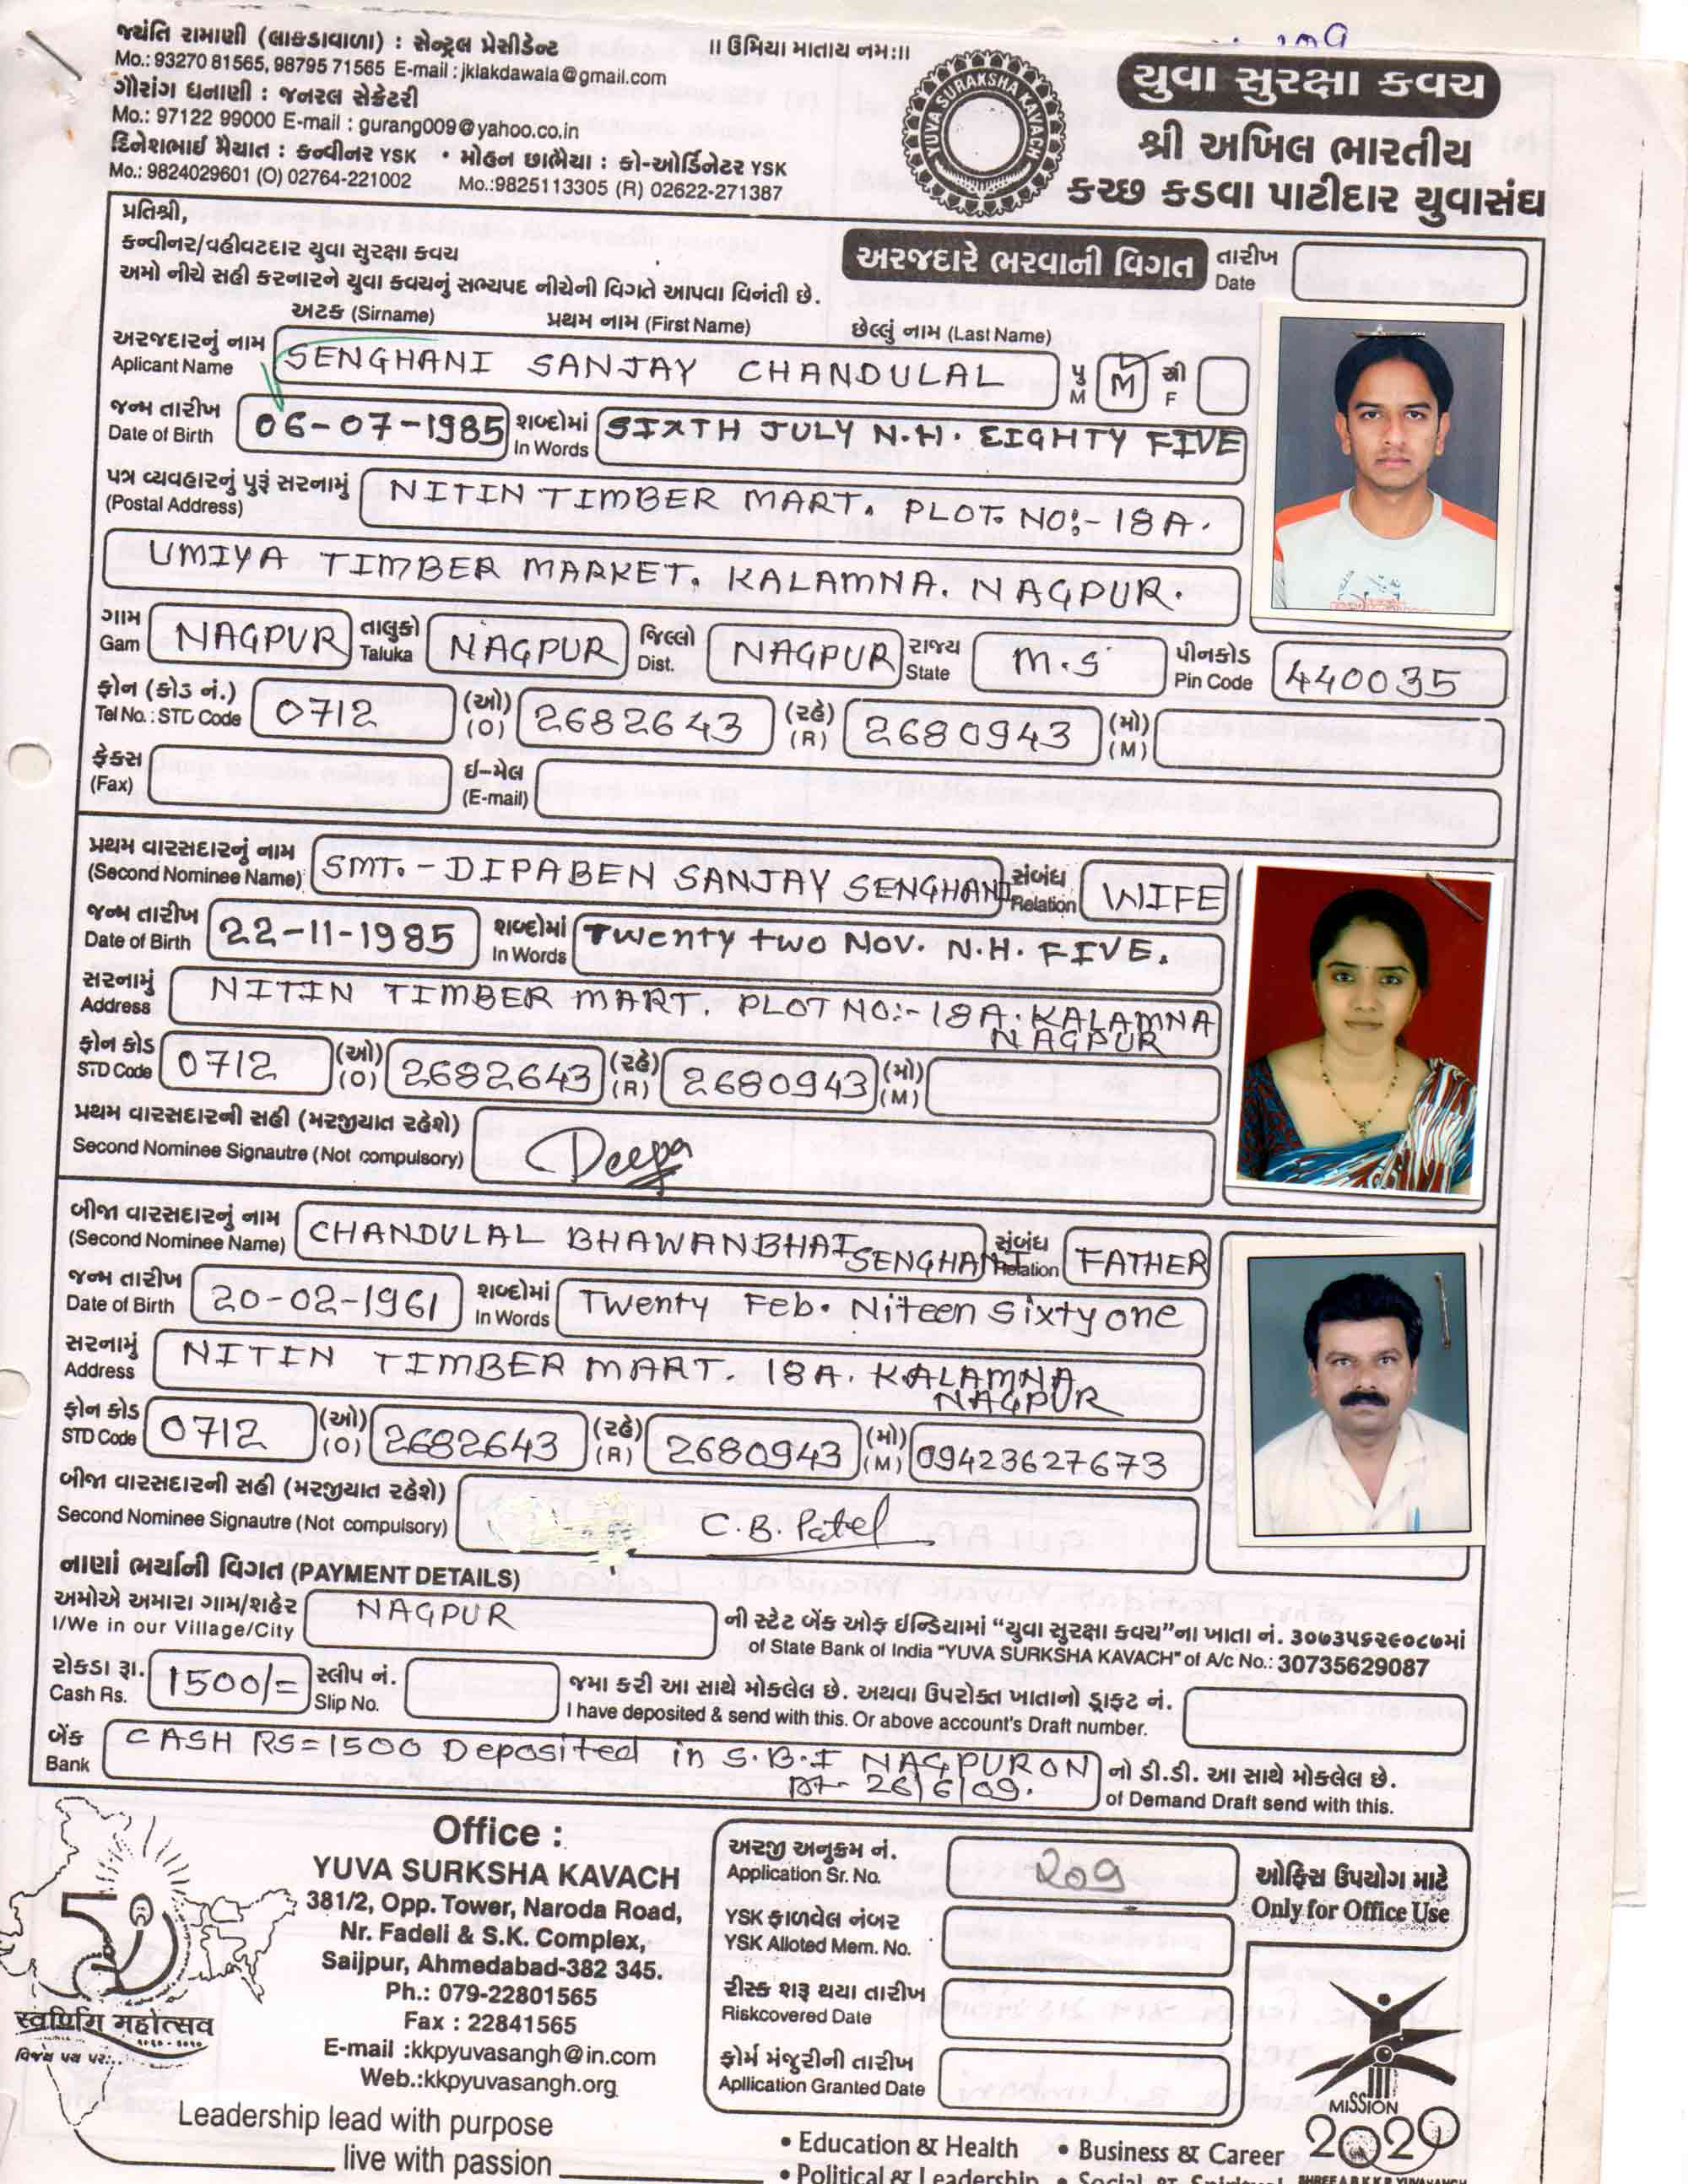 જયંતિ રામાણી (લાકડાવાળા) : સેન્ટ્રલ પ્રેસીડેન્ટ
Mo.: 93270 81565, 98795 71565 E-mail : jklakdawala@gmail.com
ગૌરાંગ ધનાણી : જનરલ સેક્રેટરી
Mo.: 97122 99000 E-mail : gurang009@yahoo.co.in
દિનેશભાઈ મૈયાત : કન્વીનર YSK • મોહન છાભૈયા : કો-ઓર્ડિનેટર YSK
Mo.: 9824029601 (O) 02764-221002 Mo.:9825113305 (R) 02622-271387
॥ ઉમિયા માતાય નમઃ॥
209
YUVA SURAKSHA KAVACH
યુવા સુરક્ષા કવચ
શ્રી અખિલ ભારતીય
કચ્છ કડવા પાટીદાર યુવાસંઘ
પ્રતિશ્રી,
કન્વીનર/વહીવટદાર યુવા સુરક્ષા કવચ
અમો નીચે સહી કરનારને યુવા કવચનું સભ્યપદ નીચેની વિગતે આપવા વિનંતી છે.
અરજદારે ભરવાની વિગત
તારીખ
Date
અટક (Sirname) પ્રથમ નામ (First Name) છેલ્લું નામ (Last Name)
અરજદારનું નામ
Aplicant Name
SENGHANI SANJAY CHANDULAL
પુ M M સ્ત્રી F
જન્મ તારીખ
Date of Birth
06-07-1985
શબ્દોમાં
In Words
SIXTH JULY N.H. EIGHTY FIVE
પત્ર વ્યવહારનું પુરૂં સરનામું
(Postal Address)
NITIN TIMBER MART. PLOT. NO:- 18A.
UMIYA TIMBER MARKET. KALAMNA. NAGPUR.
ગામ
Gam
NAGPUR
તાલુકો
Taluka
NAGPUR
જિલ્લો
Dist.
NAGPUR
રાજ્ય
State
M.S
પીનકોડ
Pin Code
440035
ફોન (કોડ નં.)
Tel No. : STD Code
0712
(ઓ)
(O)
2682643
(રહે)
(R)
2680943
(મો)
(M)
ફેક્સ
(Fax)
ઈ-મેલ
(E-mail)
પ્રથમ વારસદારનું નામ
(Second Nominee Name)
SMT. - DIPABEN SANJAY SENGHANI
સંબંધ
Relation
WIFE
જન્મ તારીખ
Date of Birth
22-11-1985
શબ્દોમાં
In Words
Twenty two Nov. N.H. FIVE.
સરનામું
Address
NITIN TIMBER MART. PLOT NO:- 18A. KALAMNA
NAGPUR
ફોન કોડ
STD Code
0712
(ઓ)
(O)
2682643
(રહે)
(R)
2680943
(મો)
(M)
પ્રથમ વારસદારની સહી (મરજીયાત રહેશે)
Second Nominee Signautre (Not compulsory)
Deepa
બીજા વારસદારનું નામ
(Second Nominee Name)
CHANDULAL BHAWANBHAI SENGHANI
સંબંધ
Relation
FATHER
જન્મ તારીખ
Date of Birth
20-02-1961
શબ્દોમાં
In Words
Twenty Feb. Niteen Sixty one
સરનામું
Address
NITIN TIMBER MART. 18A. KALAMNA
NAGPUR
ફોન કોડ
STD Code
0712
(ઓ)
(O)
2682643
(રહે)
(R)
2680943
(મો)
(M)
09423627673
બીજા વારસદારની સહી (મરજીયાત રહેશે)
Second Nominee Signautre (Not compulsory)
C.B. Patel
નાણાં ભર્યાની વિગત (PAYMENT DETAILS)
અમોએ અમારા ગામ/શહેર
I/We in our Village/City
NAGPUR
ની સ્ટેટ બેંક ઓફ ઈન્ડિયામાં “યુવા સુરક્ષા કવચ”ના ખાતા નં. ૩૦૭૩૫૬૨૯૦૮૭માં
of State Bank of India "YUVA SURKSHA KAVACH" of A/c No.: 30735629087
રોકડા રૂા.
Cash Rs.
1500/=
સ્લીપ નં.
Slip No.
જમા કરી આ સાથે મોકલેલ છે. અથવા ઉપરોક્ત ખાતાનો ડ્રાફ્ટ નં.
I have deposited & send with this. Or above account's Draft number.
બેંક
Bank
CASH RS=1500 Deposited in S.B.I NAGPUR ON
DT- 26/6/09.
નો ડી.ડી. આ સાથે મોકલેલ છે.
of Demand Draft send with this.
50
સ્વર્ણિમ મહોત્સવ
વિજય પથ પર...
Office :
YUVA SURKSHA KAVACH
381/2, Opp. Tower, Naroda Road,
Nr. Fadeli & S.K. Complex,
Saijpur, Ahmedabad-382 345.
Ph.: 079-22801565
Fax : 22841565
E-mail :kkpyuvasangh@in.com
Web.:kkpyuvasangh.org
Leadership lead with purpose
live with passion
અરજી અનુક્રમ નં.
Application Sr. No.
209
YSK ફાળવેલ નંબર
YSK Alloted Mem. No.
રીસ્ક શરૂ થયા તારીખ
Riskcovered Date
ફોર્મ મંજુરીની તારીખ
Apllication Granted Date
ઓફિસ ઉપયોગ માટે
Only for Office Use
MISSION
2020
• Education & Health • Business & Career
• Political & Leadership